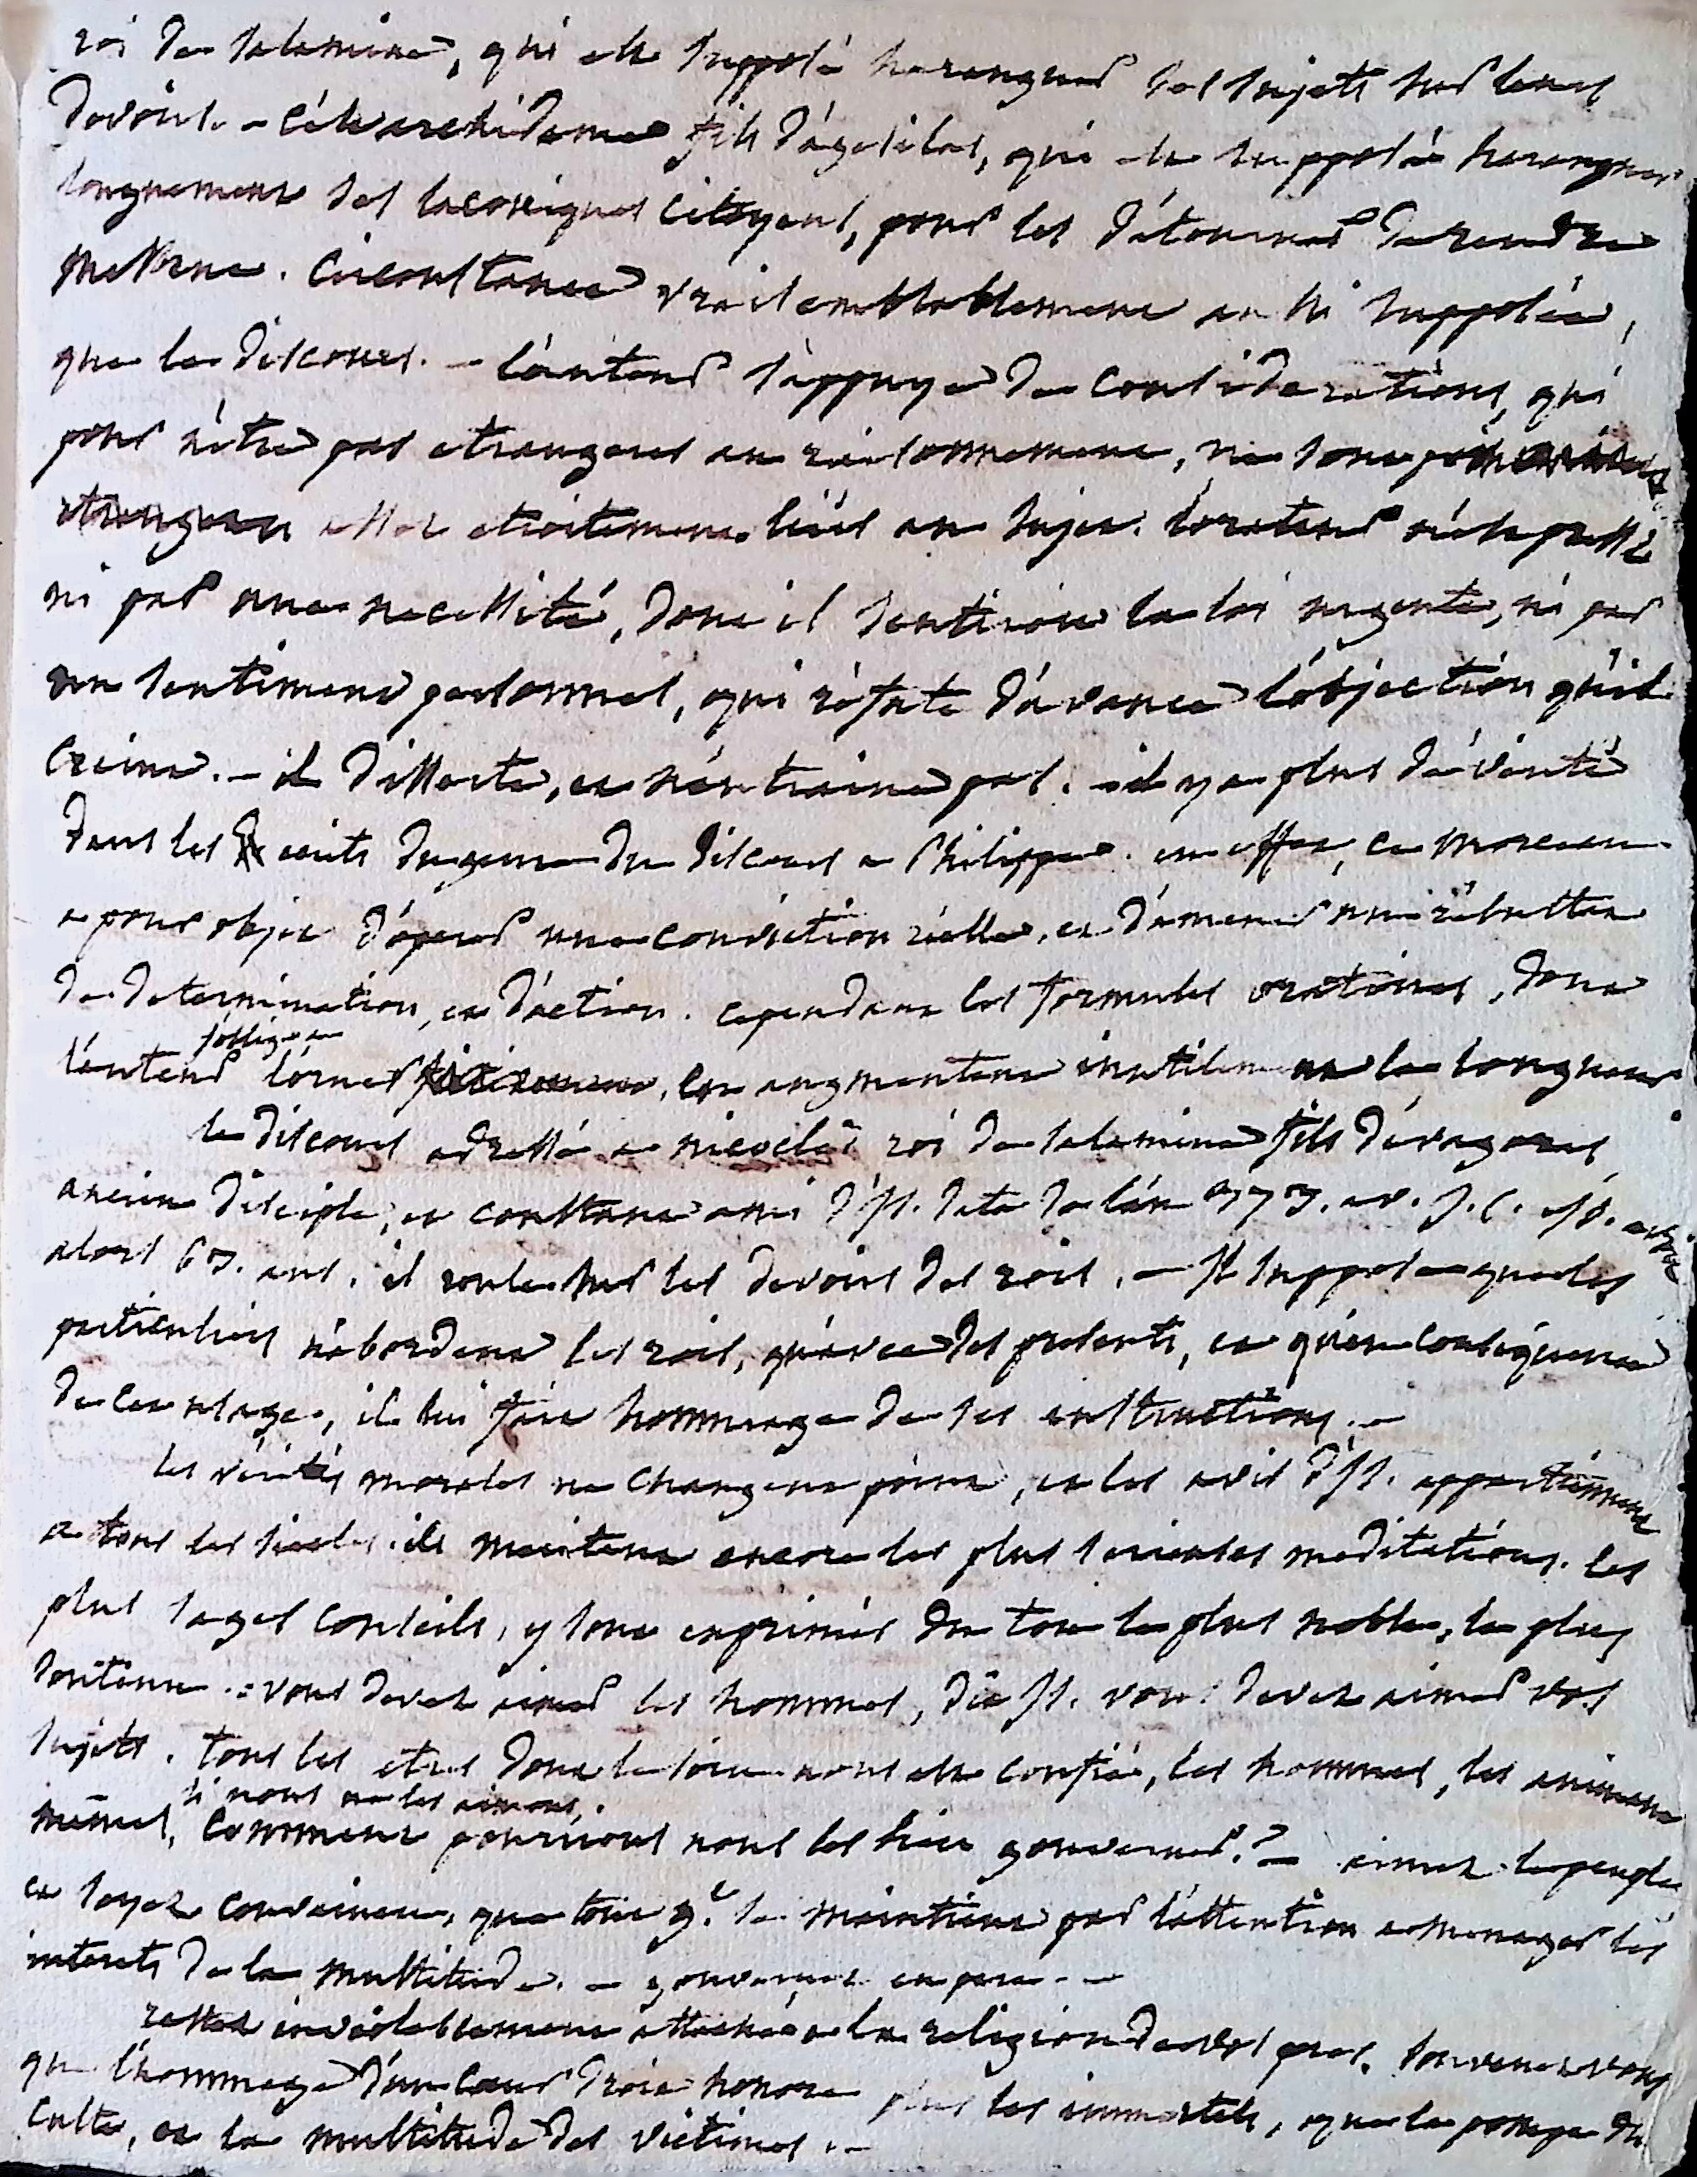 roi de salamine, qui est supposé haranguer ses sujets sur leurs
devoirs. – c'est archidame fils d'agesilas, qui est supposé haranguer
longuement ses laconiques citoyens, pour les détourner de rendre
messene. circonstance vraisemblablement aussi supposée,
que le discours. – l'auteur s'appuye de considerations, qui
pour n'être pas etrangeres au raisonnement, ne sont
assez etroitement liées au sujet. l'orateur n'est pressé
ni par une necessité, dont il sentiroit la loi urgente, ni par
un sentiment personnel, qui réfute d'avance l'objection qu'il
craint. – il disserte, et n'entraine pas. – il y a plus de vérité
dans les ecrits du genre du discours a Philippe. en effet, ce morceau
a pour objet d'operer une conviction réelle, et d'amener un résultat
de determination, et d'action. cependant les formules oratoires, dont
l'auteur l'orner, en augmentent inutilement la longueur
le discours adressé a nicoclès roi de salamine fils d'evagoras
ancien disciple, et constant ami d'Is. date de l'an 373. av. J. C. Is. avoit
alors 63. ans. il roule sur les devoirs des rois. – Is. suppose que les
particuliers n'abordent les rois, qu'avec des presents, et qu'en consequence
de cet usage, il lui fait hommage de ses instructions. –
les vérités morales ne changent point, et les avis d'Is. appartiennent
a tous les siecles. ils meritent encore les plus serieuses meditations. les
plus sages conseils, y sont exprimés du ton le plus noble, le plus
soutenu. : vous devez aimer les hommes, dit Is. vous devez aimer vos
sujets. tous les etres dont le soin nous est confié, les hommes, les animaux
si nous ne les aimons,
mêmes, comment pourrions nous les bien gouverner? – aimez le peuple,
et soyez convaincu, que tout g.t se maintient par l'attention a menager les
interets de la multitude. – gouvernez en pere. –
restez inviolablement attaché a la religion de vos peres. souvenez vous
que l'hommage d'un cœur droit honore plus les immortels, que la pompe du
culte, et la multitude des victimes. –